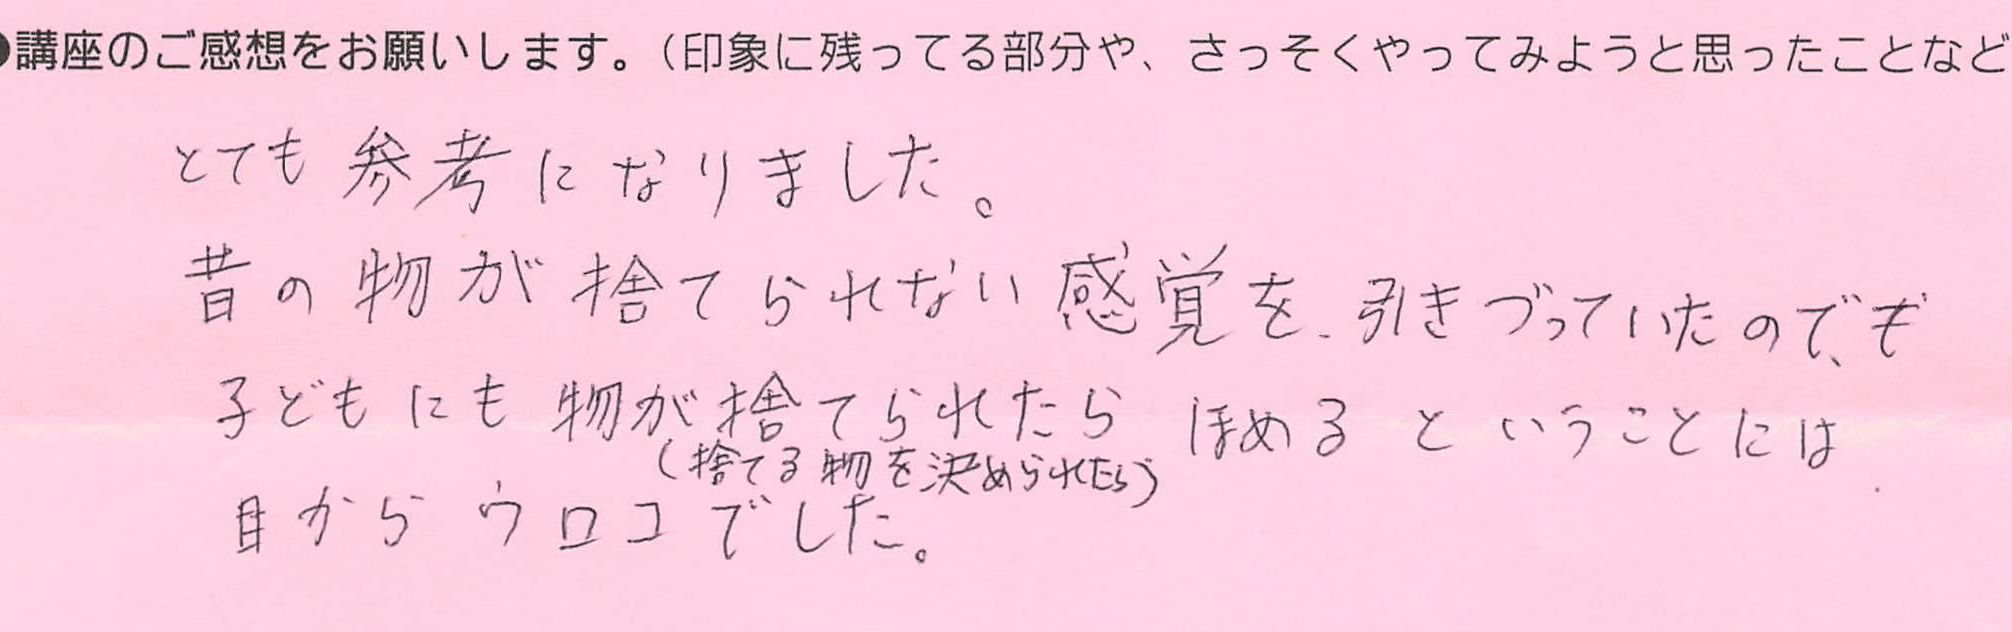 ●講座のご感想をお願いします。（印象に残ってる部分や、さっそくやってみようと思ったことなど
とても参考になりました。
昔の物が捨てられない感覚を、引きづっていたので、
子どもにも物が捨てられたらほめるということには
（捨てる物を決められたら）
目からウロコでした。